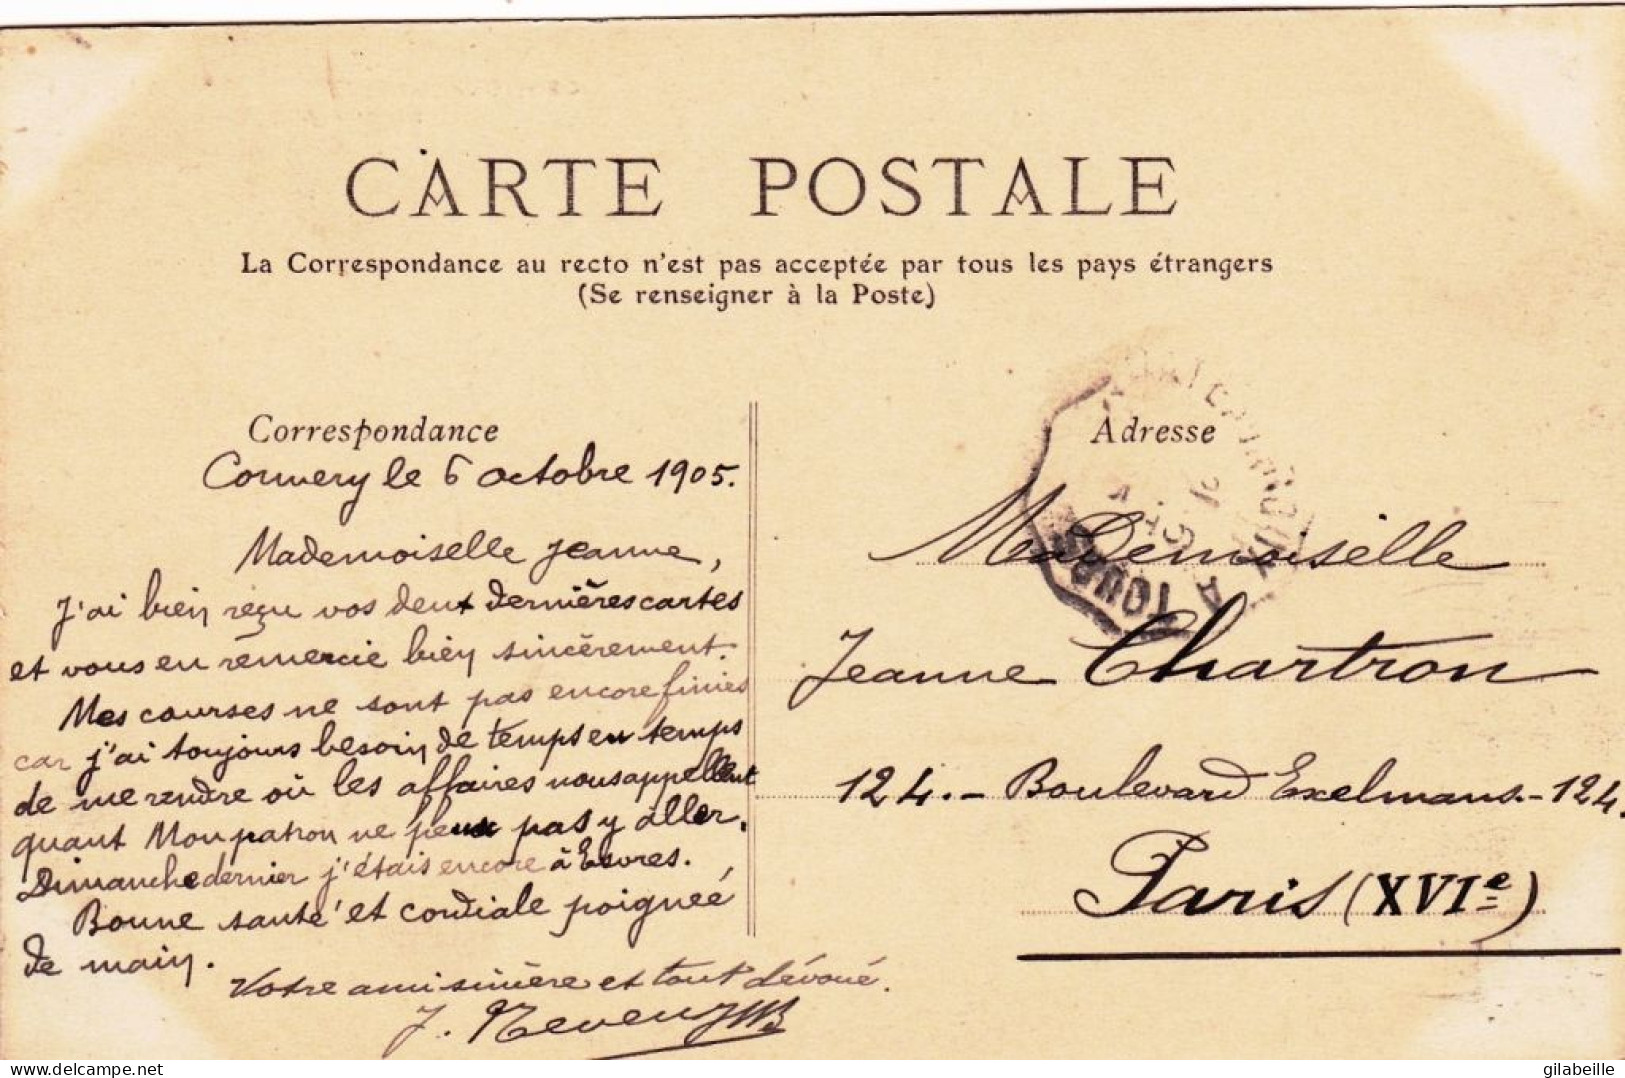 CARTE POSTALE
La Correspondance au recto n'est pas acceptée par tous les pays étrangers
(Se renseigner à la Poste)
Correspondance
Cormery le 6 octobre 1905.
Mademoiselle Jeanne,
J'ai bien reçu vos deux dernières cartes
et vous en remercie bien sincèrement.
Mes courses ne sont pas encore finies
car j'ai toujours besoin de temps en temps
de me rendre où les affaires nous appellent
quant Mon patron ne peux pas y aller.
Dimanche dernier j'étais encore à Esvres.
Bonne santé et cordiale poigneé
de main.
Votre ami sincère et tout dévoué.
J.
Adresse
A TOURS
Mademoiselle
Jeanne Chartron
124. - Boulevard Exelmans. - 124.
Paris (XVIe)
delcampe.net
gilabeille